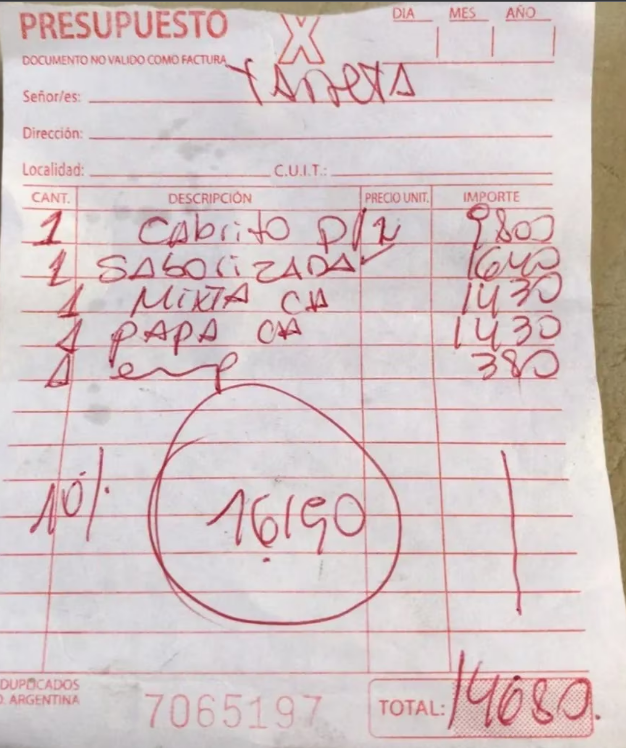 PRESUPUESTO X DIA MES AÑO
DOCUMENTO NO VALIDO COMO FACTURA
TARJETA
Señor/es:
Dirección:
Localidad: C.U.I.T.:
CANT. DESCRIPCIÓN PRECIO UNIT. IMPORTE
1 CAbrito P/2 9800
1 SAboriZADA 1640
1 MIXTA CH 1430
1 PAPA CH 1430
1 emp 380
10% 16190
DUPLICADOS
D. ARGENTINA
7065197
TOTAL: 14680.